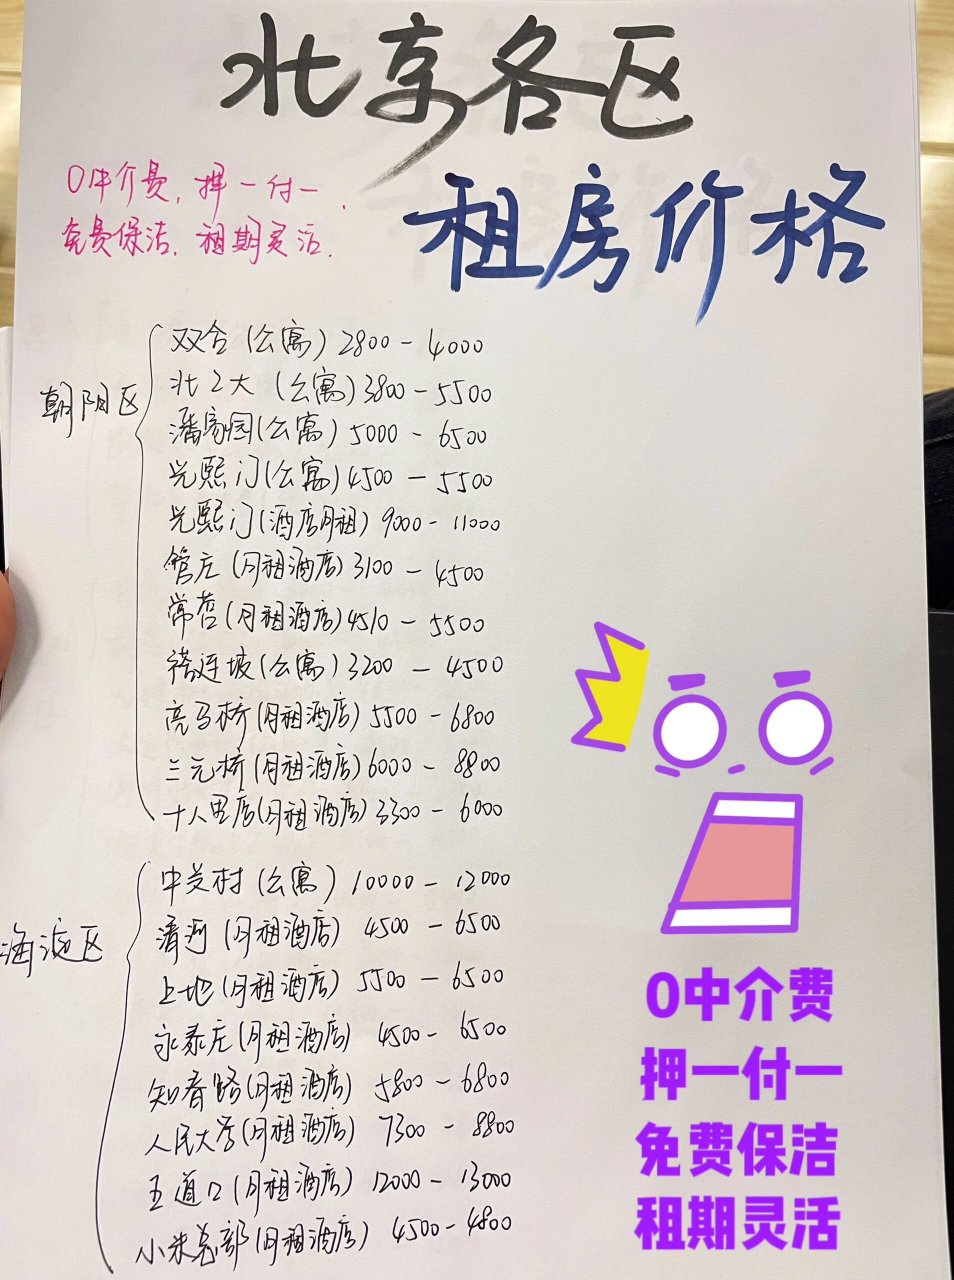 北京各区
租房价格
0中介费,押一付一,
免费保洁.租期灵活.
朝阳区
双合(公寓)2800-4000
北工大(公寓)3800-5500
潘家园(公寓)5000-6500
光熙门(公寓)4500-5500
光熙门(酒店月租)9000-11000
管庄(月租酒店)3100-4500
常营(月租酒店)4510-5500
褡裢坡(公寓)3200-4500
亮马桥(月租酒店)5500-6800
三元桥(月租酒店)6000-8800
十八里店(月租酒店)3300-6000
海淀区
中关村(公寓)10000-12000
清河(月租酒店)4500-6500
上地(月租酒店)5500-6500
永泰庄(月租酒店)4500-6500
知春路(月租酒店)5800-6800
人民大学(月租酒店)7300-8800
五道口(月租酒店)12000-13000
小米总部(月租酒店)4500-4800
0中介费
押一付一
免费保洁
租期灵活